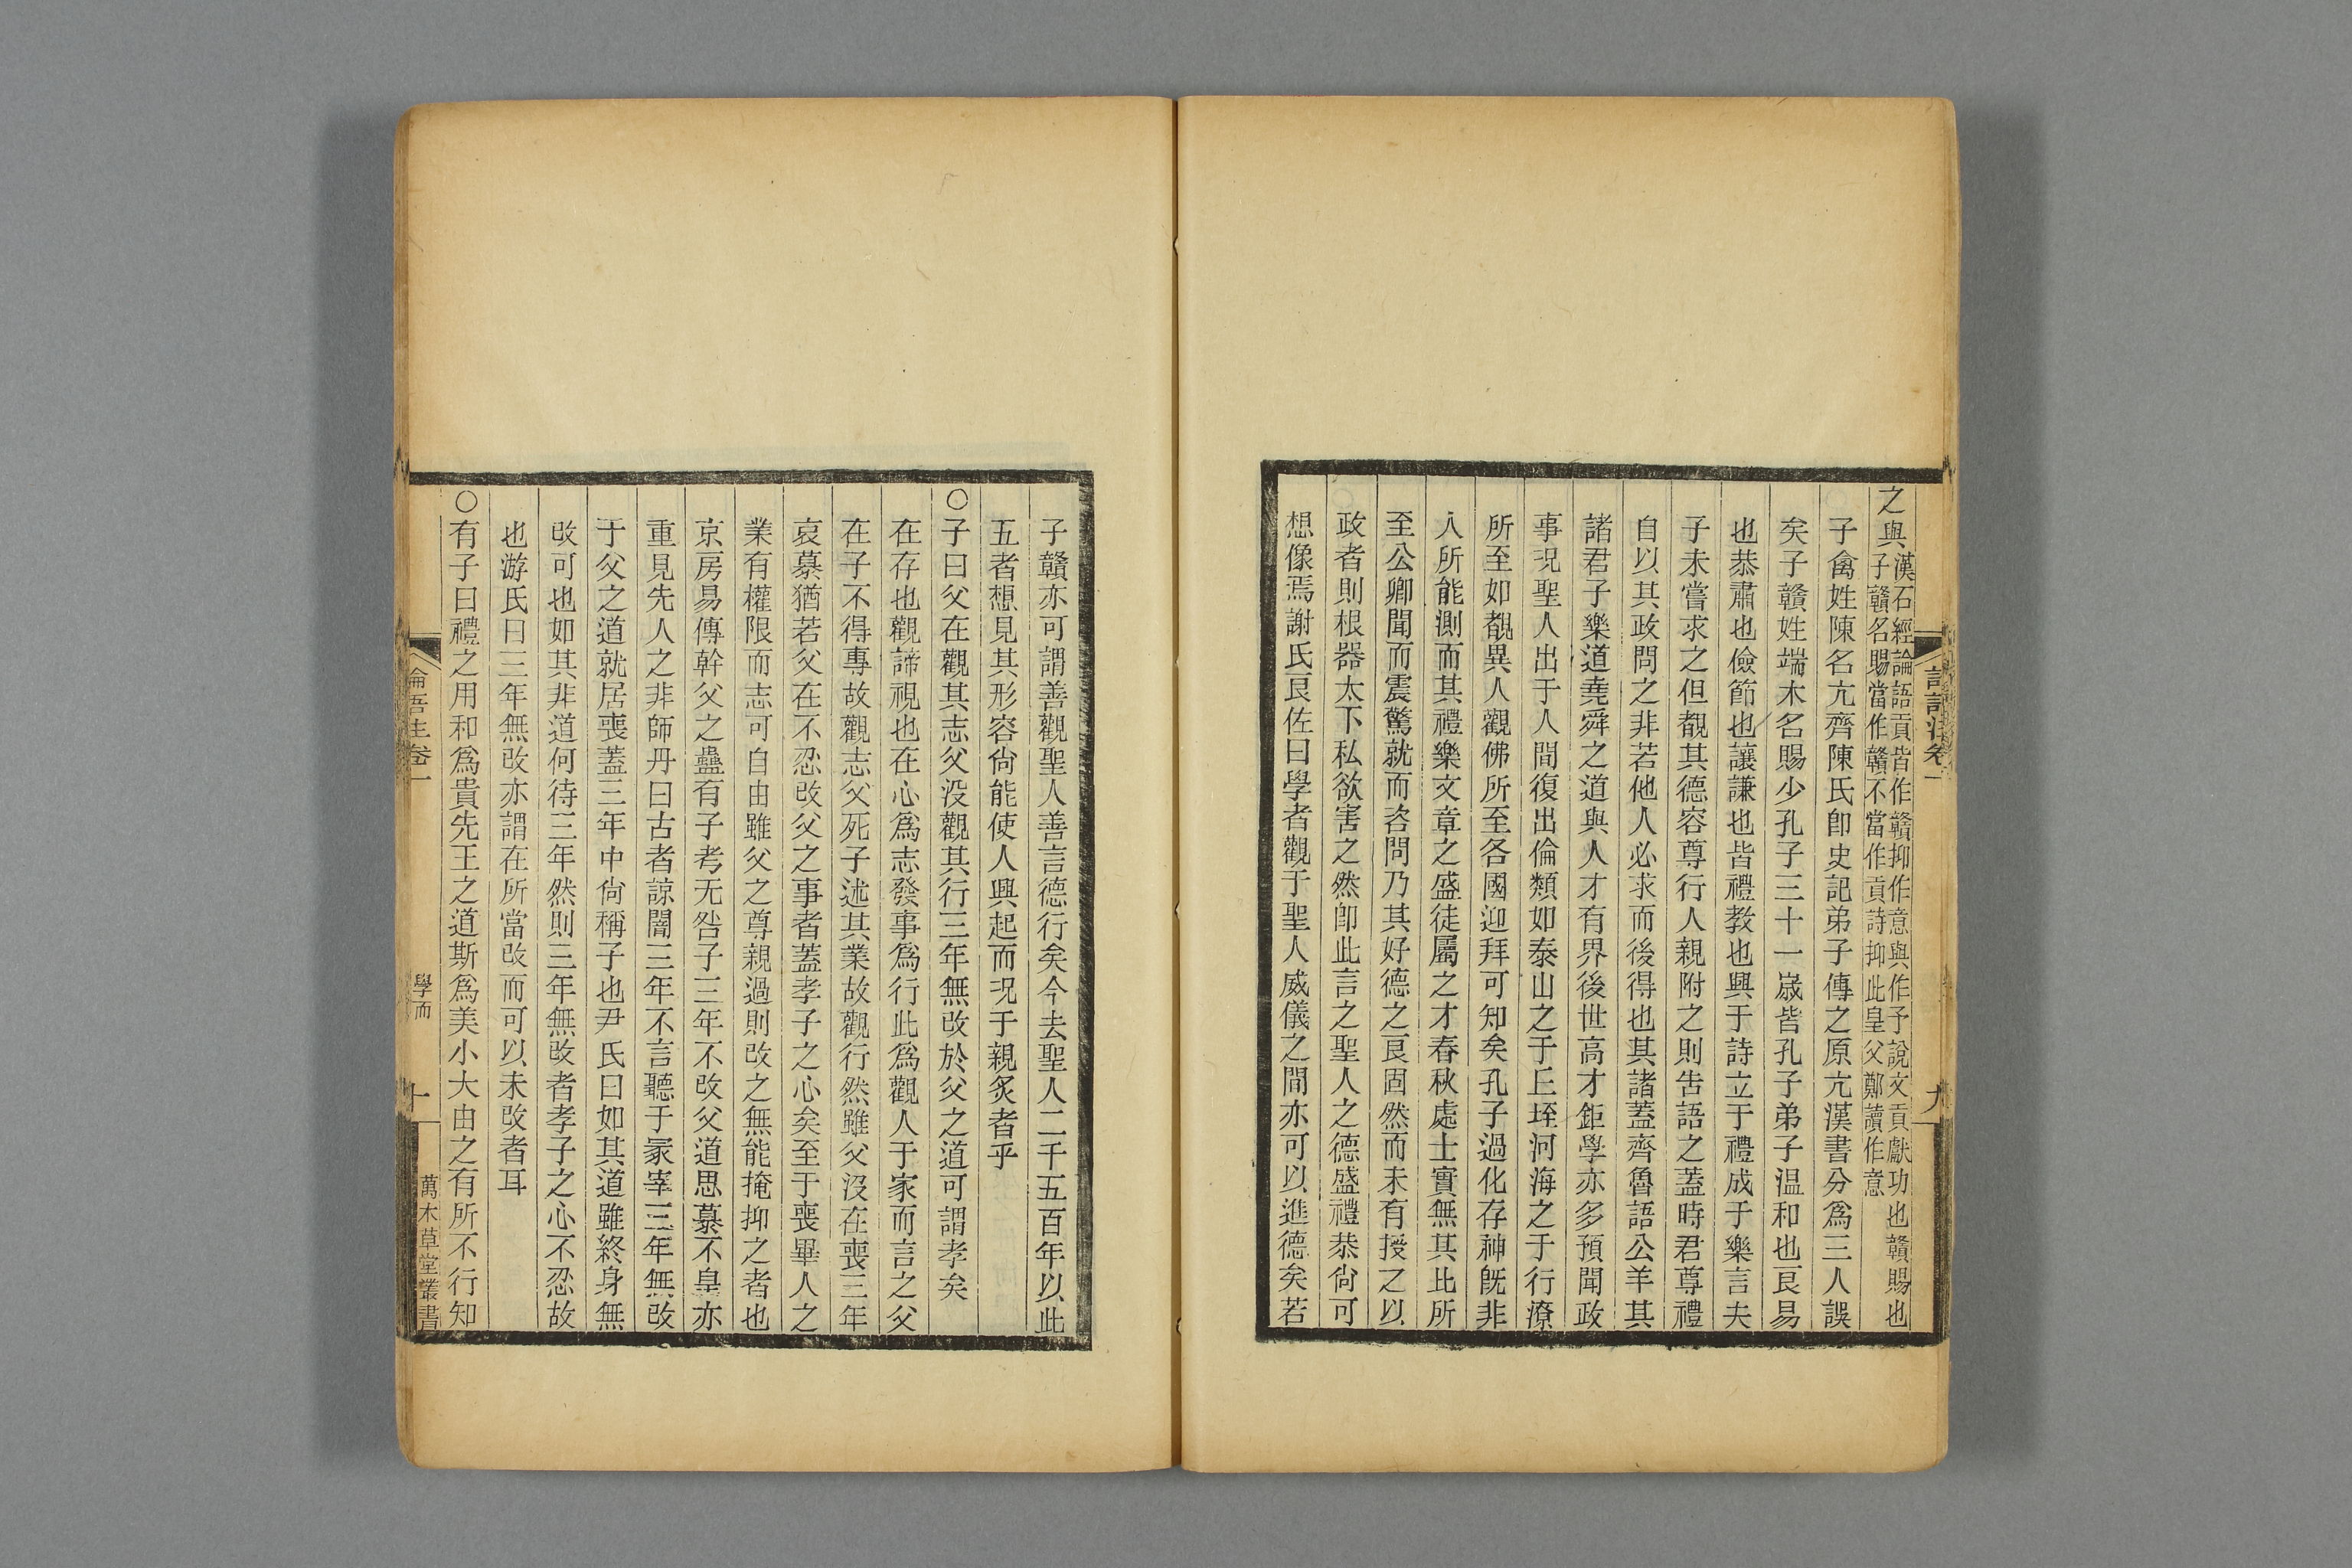 之與漢石經論語貢皆作贛抑作意與作予說文貢獻功也贛賜也
子贛名賜當作贛不當作貢詩抑此皇父鄭讀作意
子禽姓陳名亢齊陳氏卽史記弟子傳之原亢漢書分爲三人誤
矣子贛姓端木名賜少孔子三十一歲皆孔子弟子温和也良易
也恭肅也儉節也讓謙也皆禮教也興于詩立于禮成于樂言夫
子未嘗求之但覩其德容尊行人親附之則告語之蓋時君尊禮
自以其政問之非若他人必求而後得也其諸蓋齊魯語公羊其
諸君子樂道堯舜之道與人才有界後世高才鉅學亦多預聞政
事况聖人出于人間復出倫類如泰山之于丘垤河海之于行潦
所至如覩異人觀佛所至各國迎拜可知矣孔子過化存神旣非
人所能測而其禮樂文章之盛徒屬之才春秋處士實無其比所
至公卿聞而震驚就而咨問乃其好德之良固然而未有授之以
政者則根器太下私欲害之然卽此言之聖人之德盛禮恭尙可
想像焉謝氏良佐曰學者觀于聖人威儀之間亦可以進德矣若
九
子贛亦可謂善觀聖人善言德行矣今去聖人二千五百年以此
五者想見其形容尙能使人興起而况于親炙者乎
○子曰父在觀其志父沒觀其行三年無改於父之道可謂孝矣
在存也觀諦視也在心爲志發事爲行此爲觀人于家而言之父
在子不得專故觀志父死子述其業故觀行然雖父沒在喪三年
哀慕猶若父在不忍改父之事者蓋孝子之心矣至于喪畢人之
業有權限而志可自由雖父之尊親過則改之無能掩抑之者也
京房易傳幹父之蠱有子考无咎子三年不改父道思慕不皇亦
重見先人之非師丹曰古者諒闇三年不言聽于冢宰三年無改
于父之道就居喪蓋三年中尙稱子也尹氏曰如其道雖終身無
改可也如其非道何待三年然則三年無改者孝子之心不忍故
也游氏曰三年無改亦謂在所當改而可以未改者耳
○有子曰禮之用和爲貴先王之道斯爲美小大由之有所不行知
論語注卷一
學而
十
萬木草堂叢書